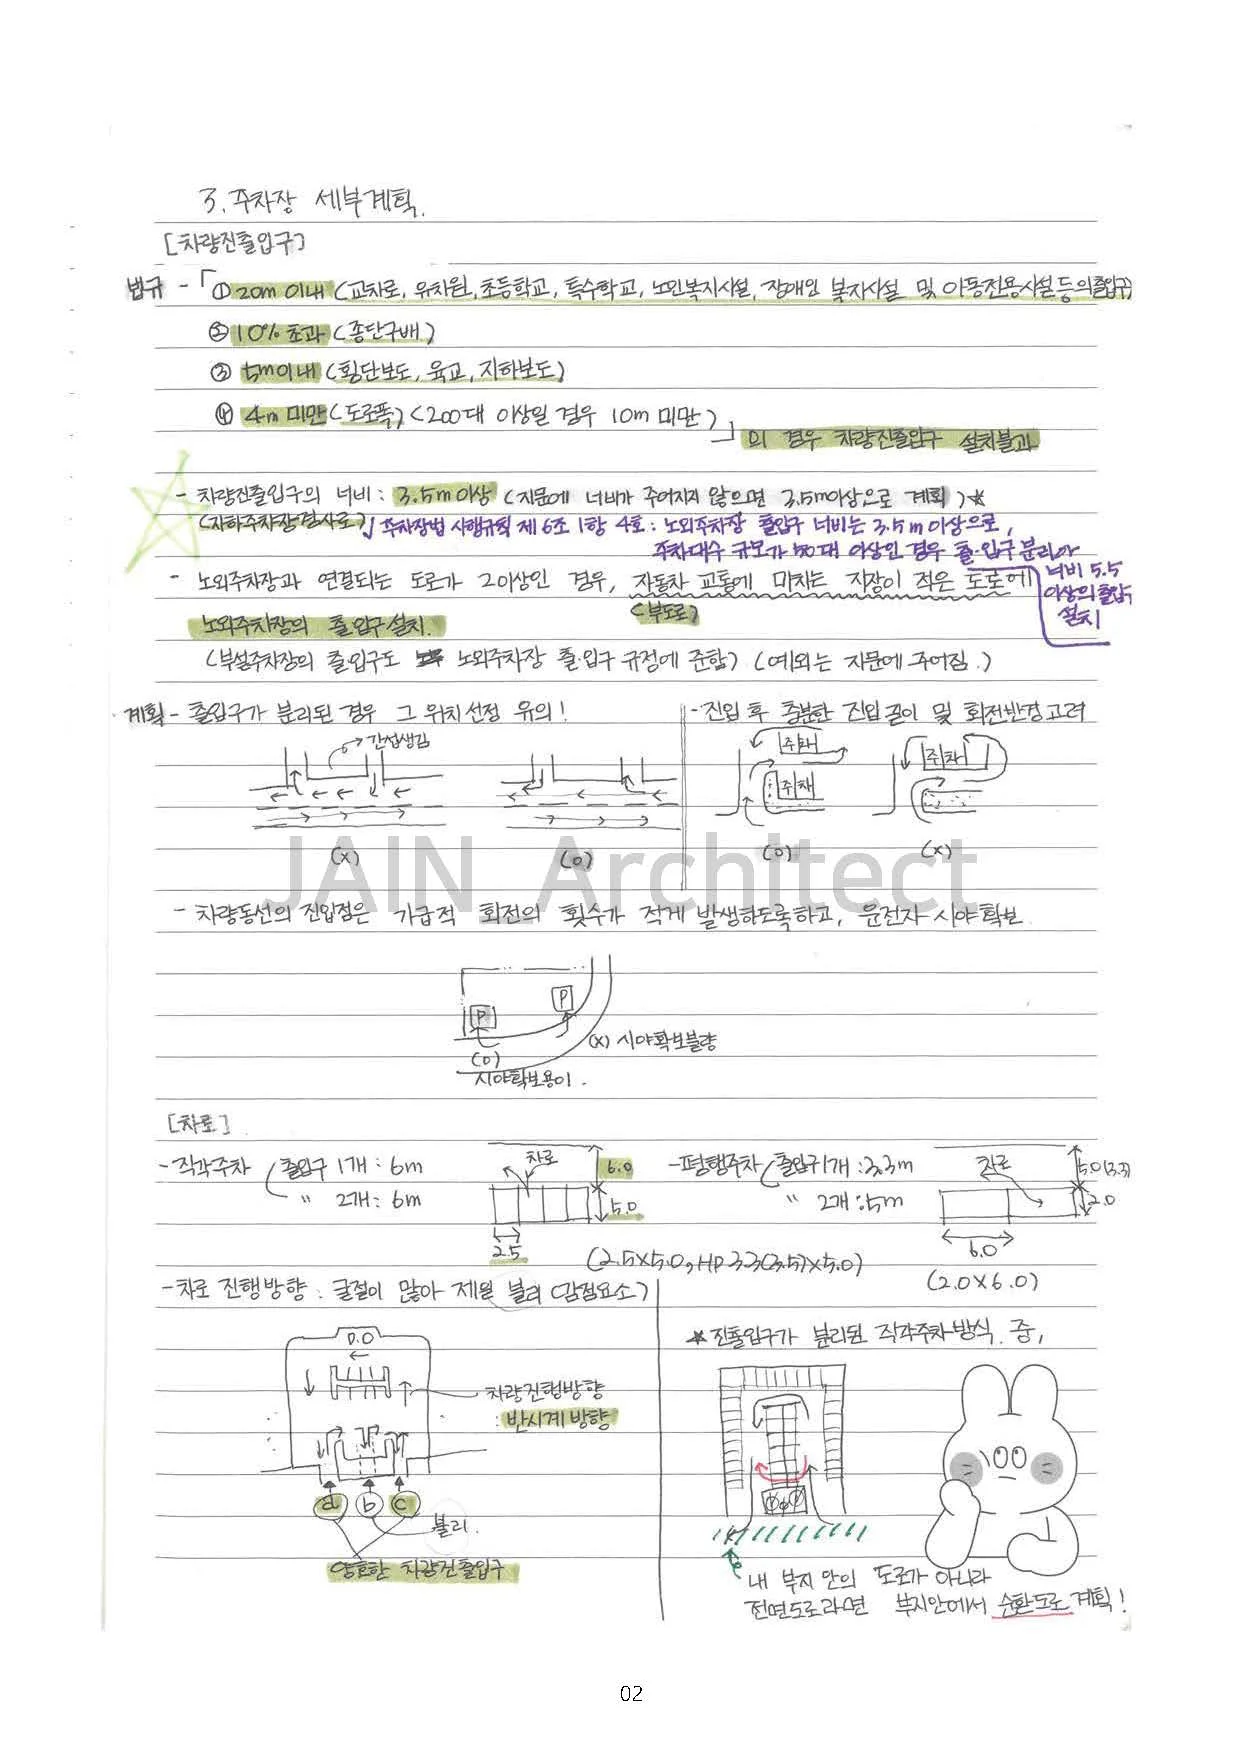 3. 주차장 세부계획.
[차량진출입구]
법규 - 「① 20m 이내 (교차로, 유치원, 초등학교, 특수학교, 노인복지시설, 장애인 복지시설 및 아동전용시설등의 출입구)
② 10% 초과 (종단구배)
③ 5m이내 (횡단보도, 육교, 지하보도)
④ 4m 미만 (도로폭) (200대 이상일 경우 10m 미만)
」의 경우 차량진출입구 설치불가
- 차량진출입구의 너비 : 3.5m이상 (지문에 너비가 주어지지 않으면 3.5m이상으로 계획) ★
(지하주차장경사로) 주차장법 시행규칙 제6조 1항 4호 : 노외주차장 출입구 너비는 3.5m이상으로,
주차대수 규모가 50대 이상인 경우 출·입구 분리or
너비 5.5
이상의 출입구
설치
- 노외주차장과 연결되는 도로가 2이상인 경우, 자동차 교통에 미치는 지장이 적은 도로에
(부도로)
노외주차장의 출입구 설치.
(부설주차장의 출입구도 노외주차장 출·입구 규정에 준함) (예외는 지문에 주어짐.)
계획 - 출입구가 분리된 경우 그 위치선정 유의!
- 진입 후 충분한 진입길이 및 회전반경 고려
간섭생김
주차
주차
주차
(x) (o) (o) (x)
JAIN_Architect
- 차량동선의 진입점은 가급적 회전의 횟수가 적게 발생하도록하고, 운전자 시야확보
P P
(x) 시야확보불량
(o)
시야확보용이.
[차로]
- 직각주차 (출입구 1개 : 6m
" 2개 : 6m
차로
6.0
5.0
2.5
- 평행주차 (출입구1개 : 3.3m
" 2개 : 5m
차로
5.0(3.3)
2.0
6.0
(2.5x5.0, HP 3.3(3.5)x5.0)
(2.0x6.0)
- 차로 진행방향 : 굴절이 많아 제일 불리 (감점요소)
D.O
차량진행방향
: 반시계 방향
a b c
불리.
양호한 차량진출입구
★ 진출입구가 분리된 직각주차방식 중,
내 부지 안의 도로가 아니라
전면도로라면 부지안에서 순환도로 계획!
02